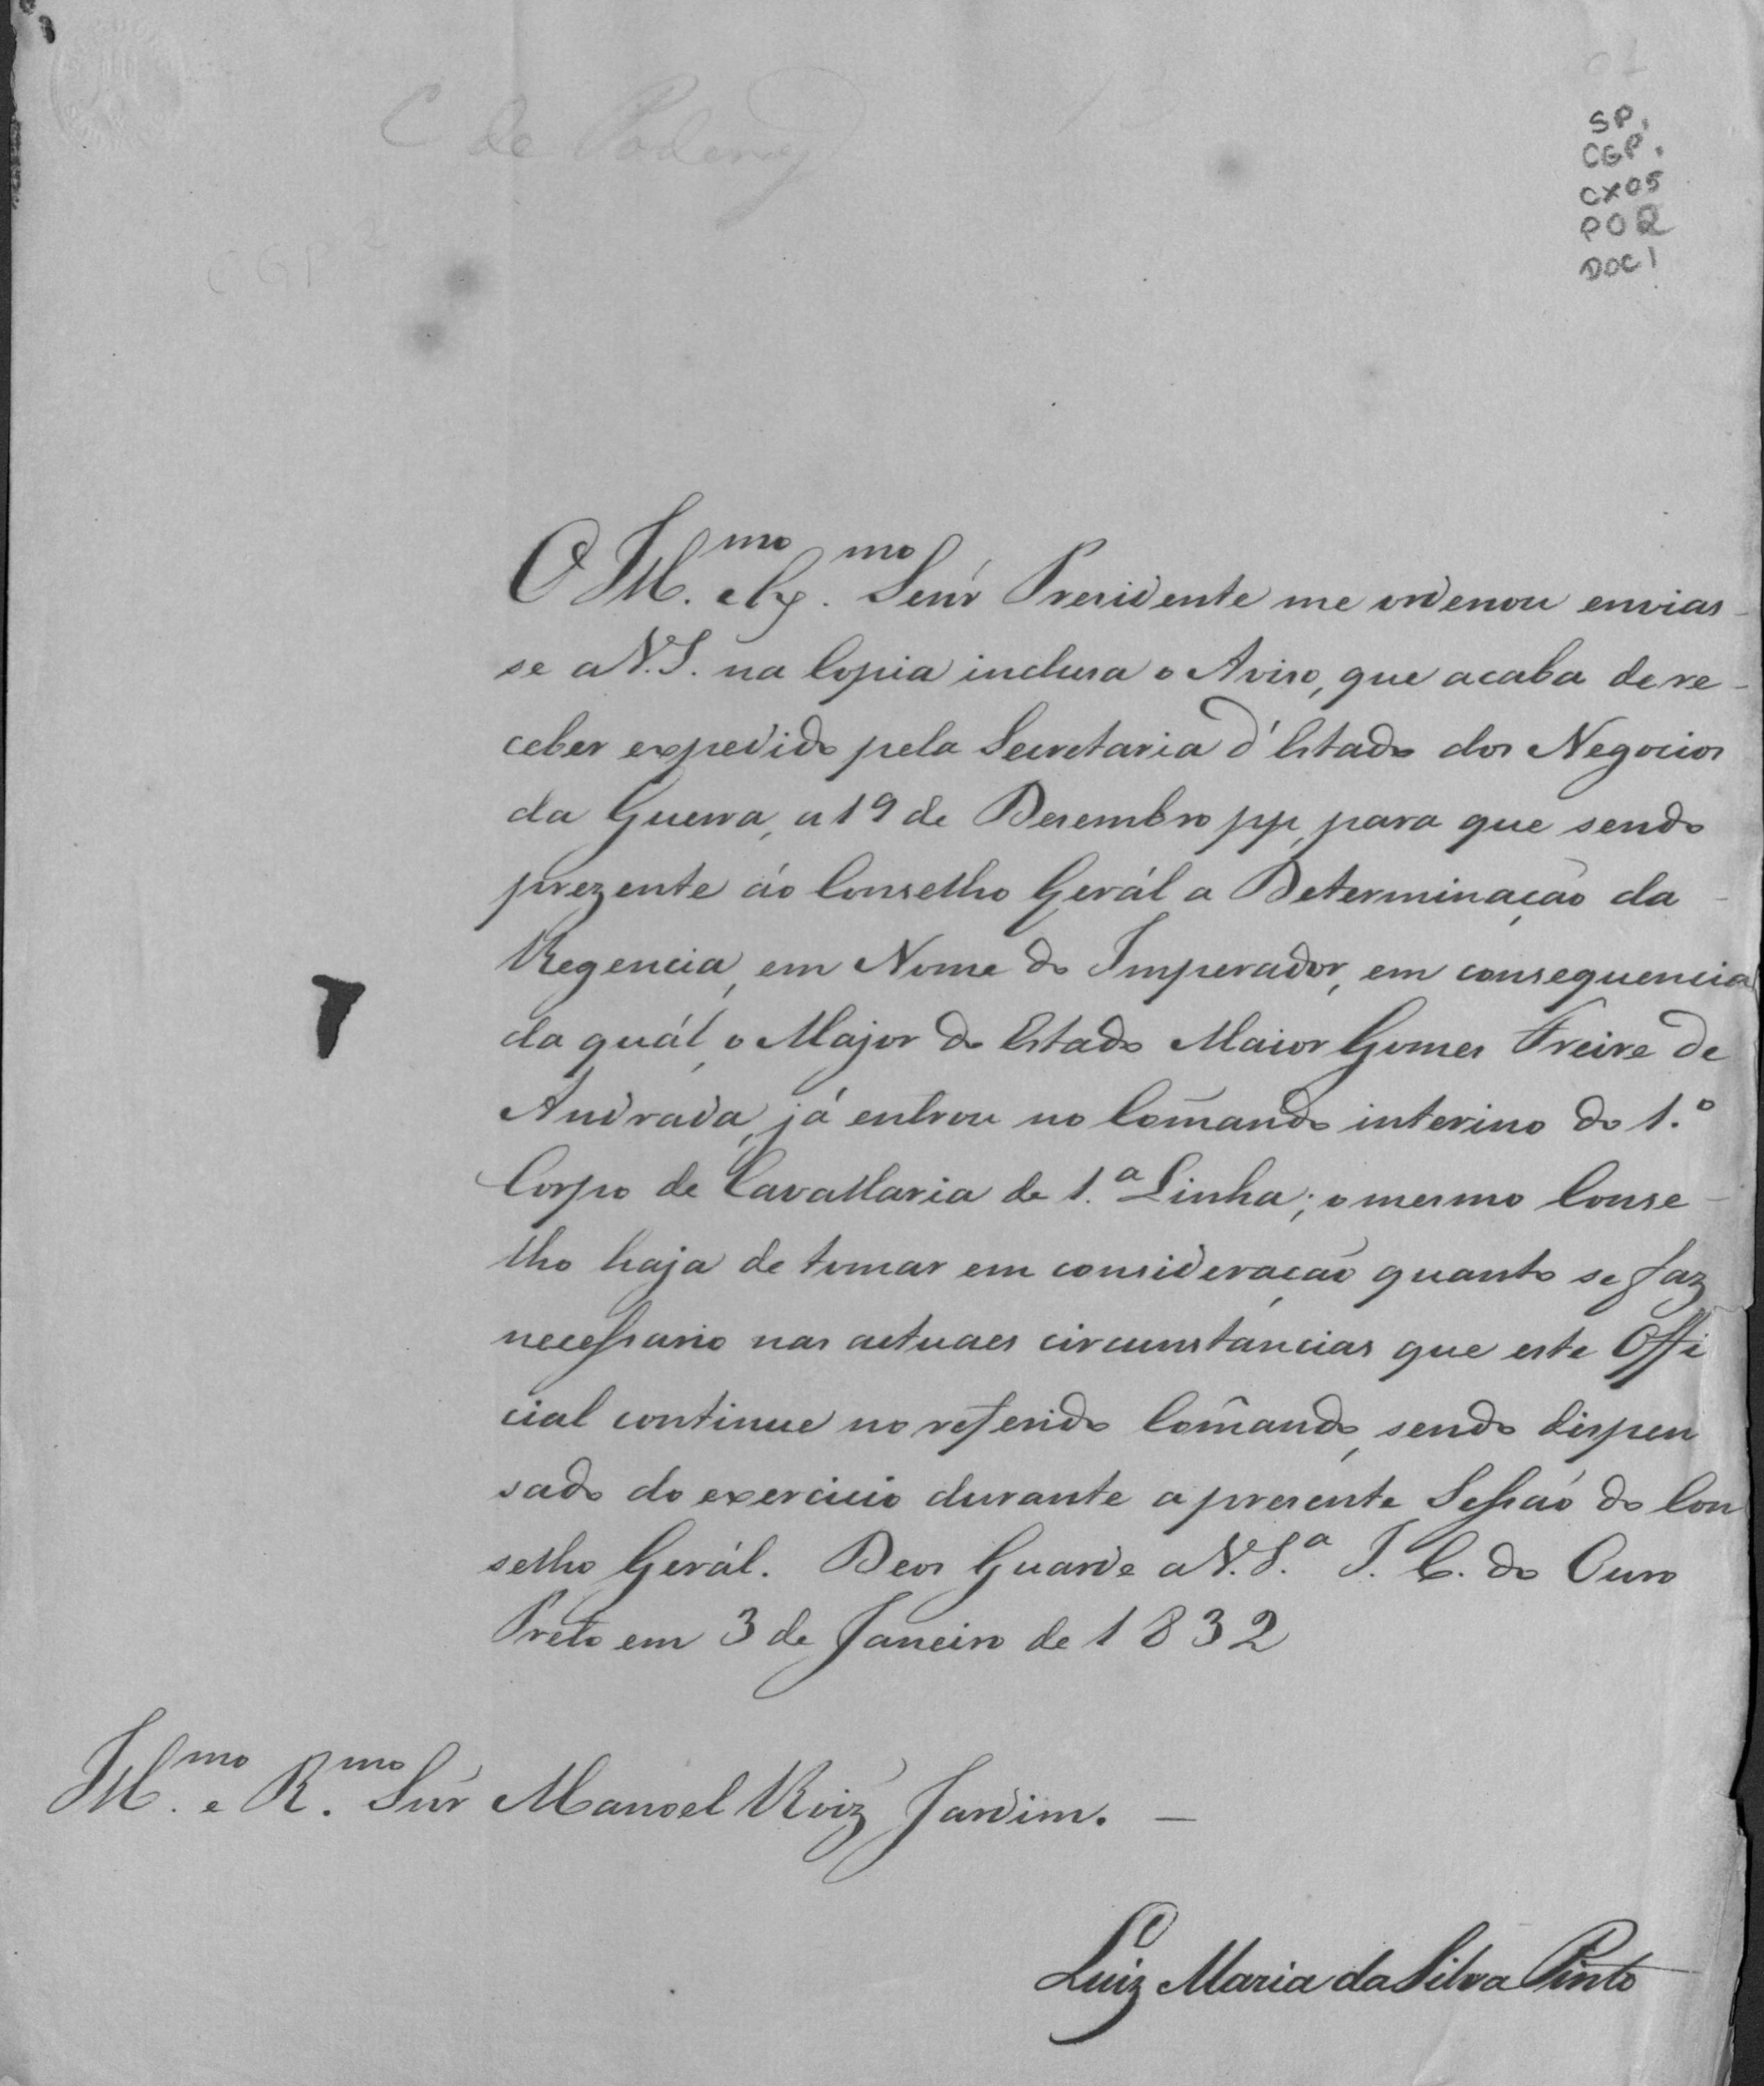 C de Poderes
SP.
CGP.
CX05
P02
DOC1
CGP
O Ill.mo e Ex.mo Senr Presidente me ordenou envias-
se a V.S. na Copia inclusa o Aviso, que acaba de re-
ceber expedido pela Secretaria d'Estado dos Negocios
da Guerra, a 19 de Desembro pp, para que sendo
prezente áo Conselho Gerál a Determinação da
Regencia, em Nome do Imperador, em consequencia
da quál, o Major do Estado Maior Gomes Freire de
Andrada, já entrou no Com̃ando interino do 1.º
Corpo de Cavallaria de 1.ª Linha; o mesmo Conse-
lho haja de tomar em consideração quanto se faz
necessario nas actuaes circumstancias que este Offi
cial continue no referido Com̃ando, sendo dispen
sado do exercicio durante a presente Sessão do Con
selho Gerál. Deos Guarde a V.S.ª I. C. do Ouro
Preto em 3 de Janeiro de 1832
Ill.mo e R.mo Snr Manoel Roiz Jardim. —
Luiz Maria da Silva Pinto